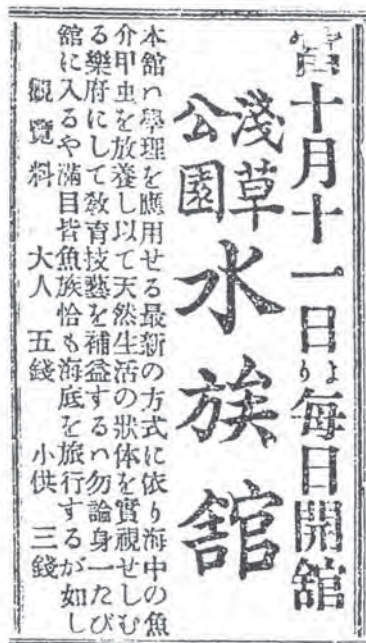 當十月十一日より毎日開舘
淺草公園
水族舘
本舘ハ學理を應用せる最新の方式に依り海中の魚
介甲虫を放養し以て天然生活の狀体を實視せしむ
る樂府にして敎育技藝を補益するハ勿論身一たび
舘に入るや滿目皆魚族恰も海底を旅行するが如し
觀覽料 大人 五錢 小供 三錢